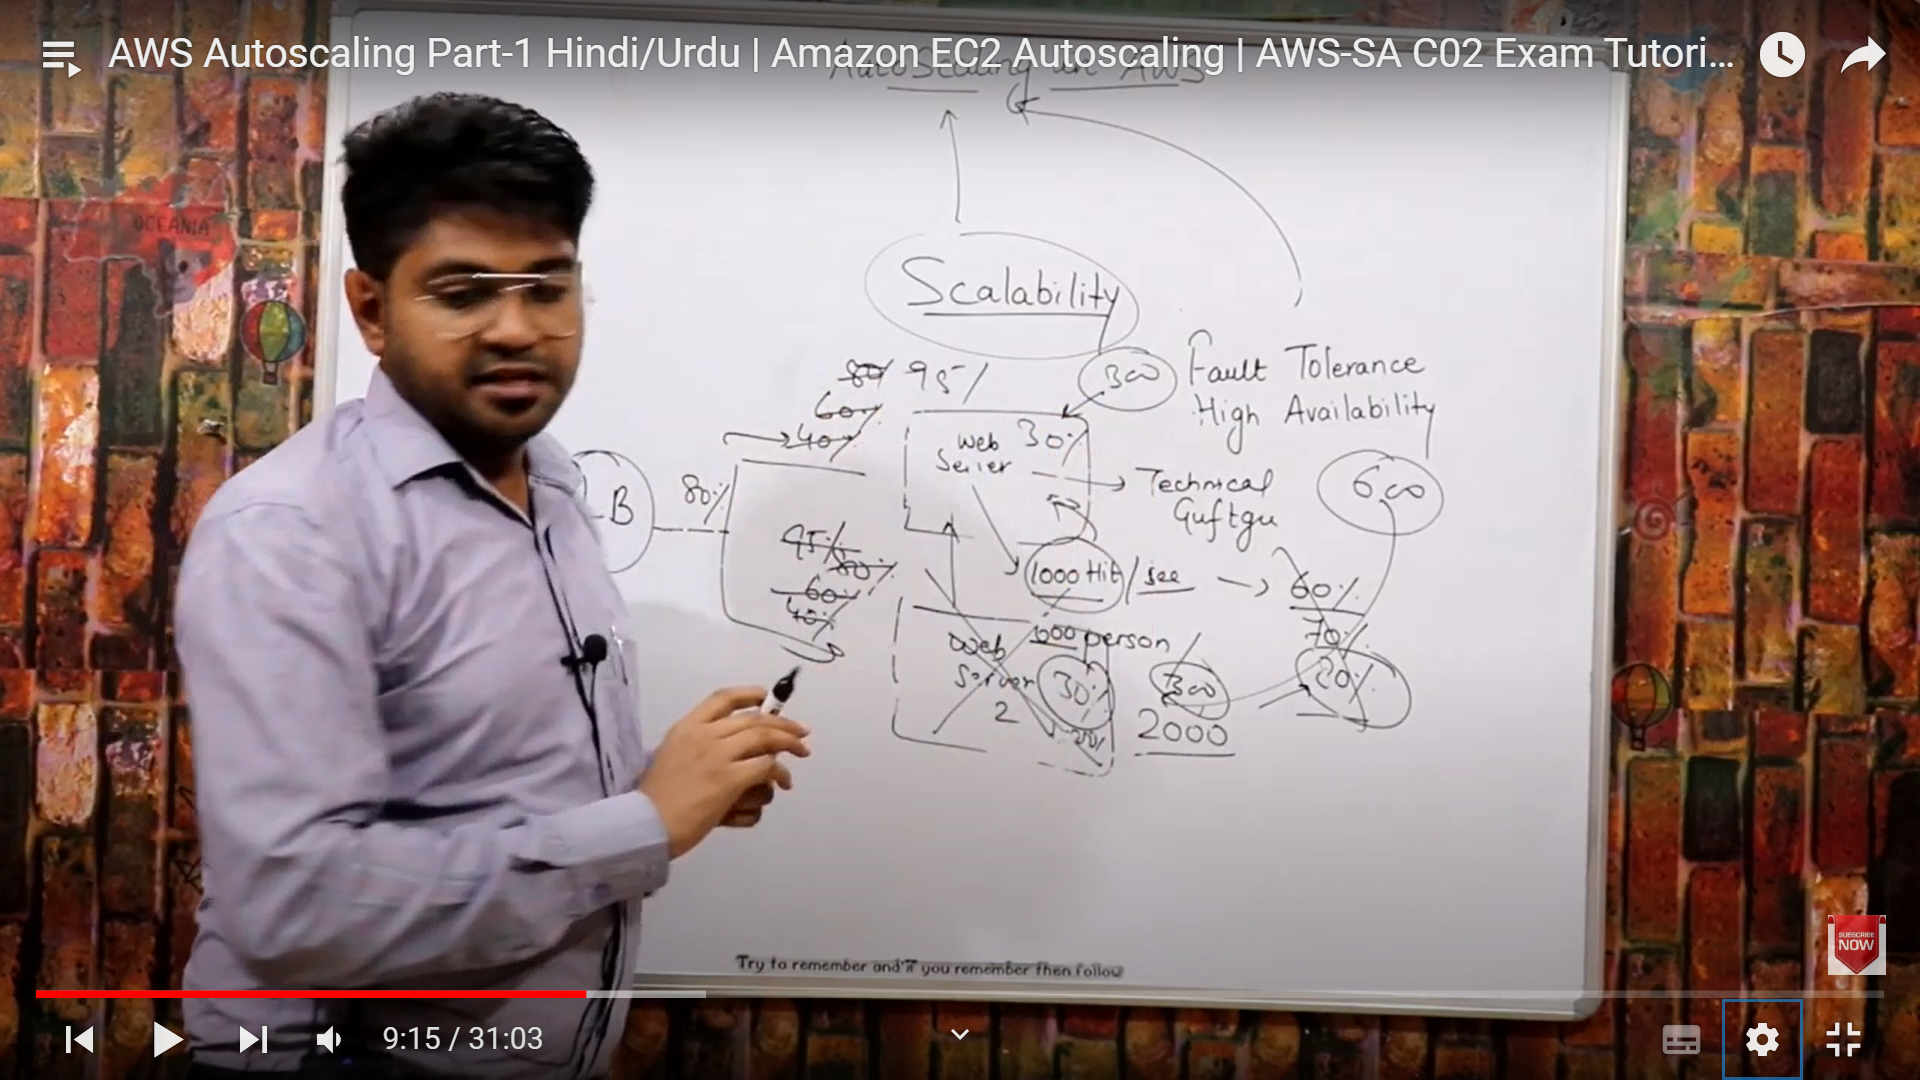 AWS Autoscaling Part-1 Hindi/Urdu | Amazon EC2 Autoscaling | AWS-SA C02 Exam Tutori...
AutoScaling in AWS
OCEANIA
Scalability
80% 95%
300
Fault Tolerance
60%
High Availability
40%
Web 30%
Server
Technical
Guftgu
600
B
80%
95%
80%
60%
40%
1000 Hit/sec
60%
70%
80%
Web 1000 person
Server 30%
2
300
2000
Try to remember and if you remember then follow
SUBSCRIBE
NOW
9:15 / 31:03